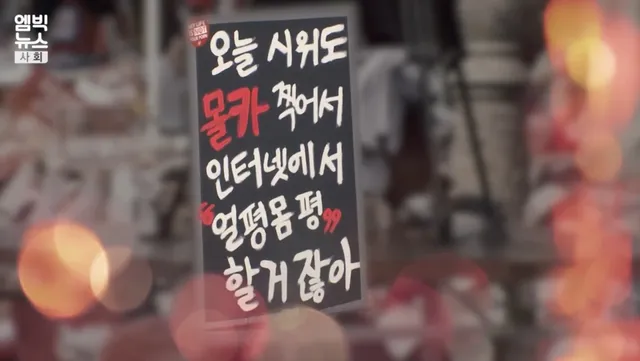 엠빅
뉴스
사회
오늘 시위도
몰카 찍어서
인터넷에서
"얼평몸평"
할거잖아